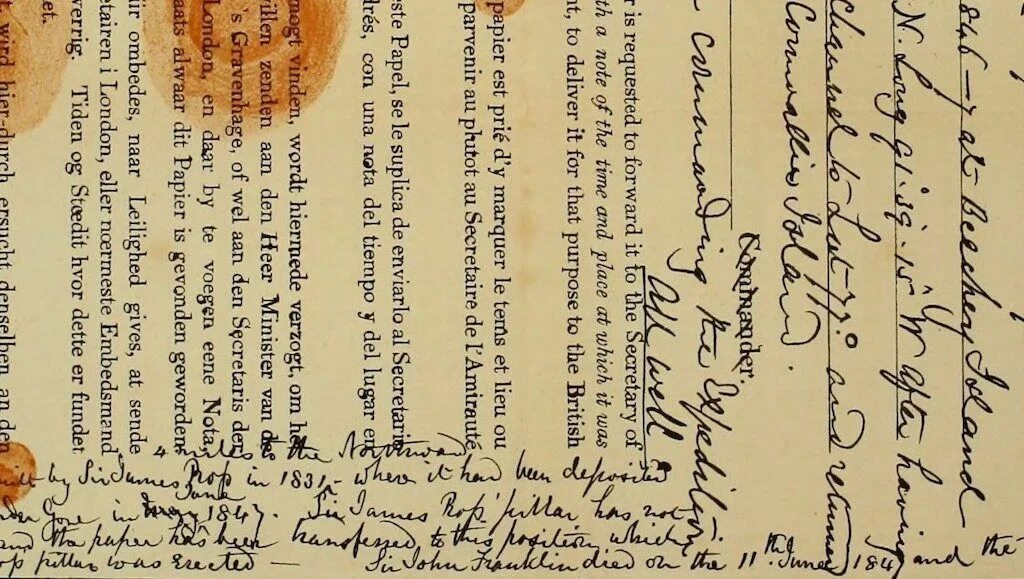 846—7 at Beechey Island
N. Long 91°.39'.15" W after having
channel to Lat 77° and returned
Cornwallis Island.
Commander.
commanding the Expedition.
All well
r is requested to forward it to the Secretary of
th a note of the time and place at which it was
nt, to deliver it for that purpose to the British
papier est prié d'y marquer le tems et lieu ou
parvenir au plutot au Secretaire de l'Amirauté
este Papel, se le suplica de enviarlo al Secretario
drés, con una nota del tiempo y del lugar en
mogt vinden, wordt hiermede verzogt, om he
willen zenden aan den Heer Minister van de
's Gravenhage, of wel aan den Secretaris der
London, en daar by te voegen eene Nota
laats alwaar dit Papier is gevonden geworden
dir ombedes, naar Leilighed gives, at sende
etairen i London, eller nœrmeste Embedsmand
verrig. Tiden og Stœdit hvor dette er fundet
et.
t, wird hier-durch ersucht denselben an den
4 miles to the Northward
by Sir James Ross in 1831 – where it had been deposited
June
Gore in May 1847. Sir James Ross' pillar has not
and the paper has been transferred to this position which
Ross pillar was erected — Sir John Franklin died on the 11th June 1847 and the